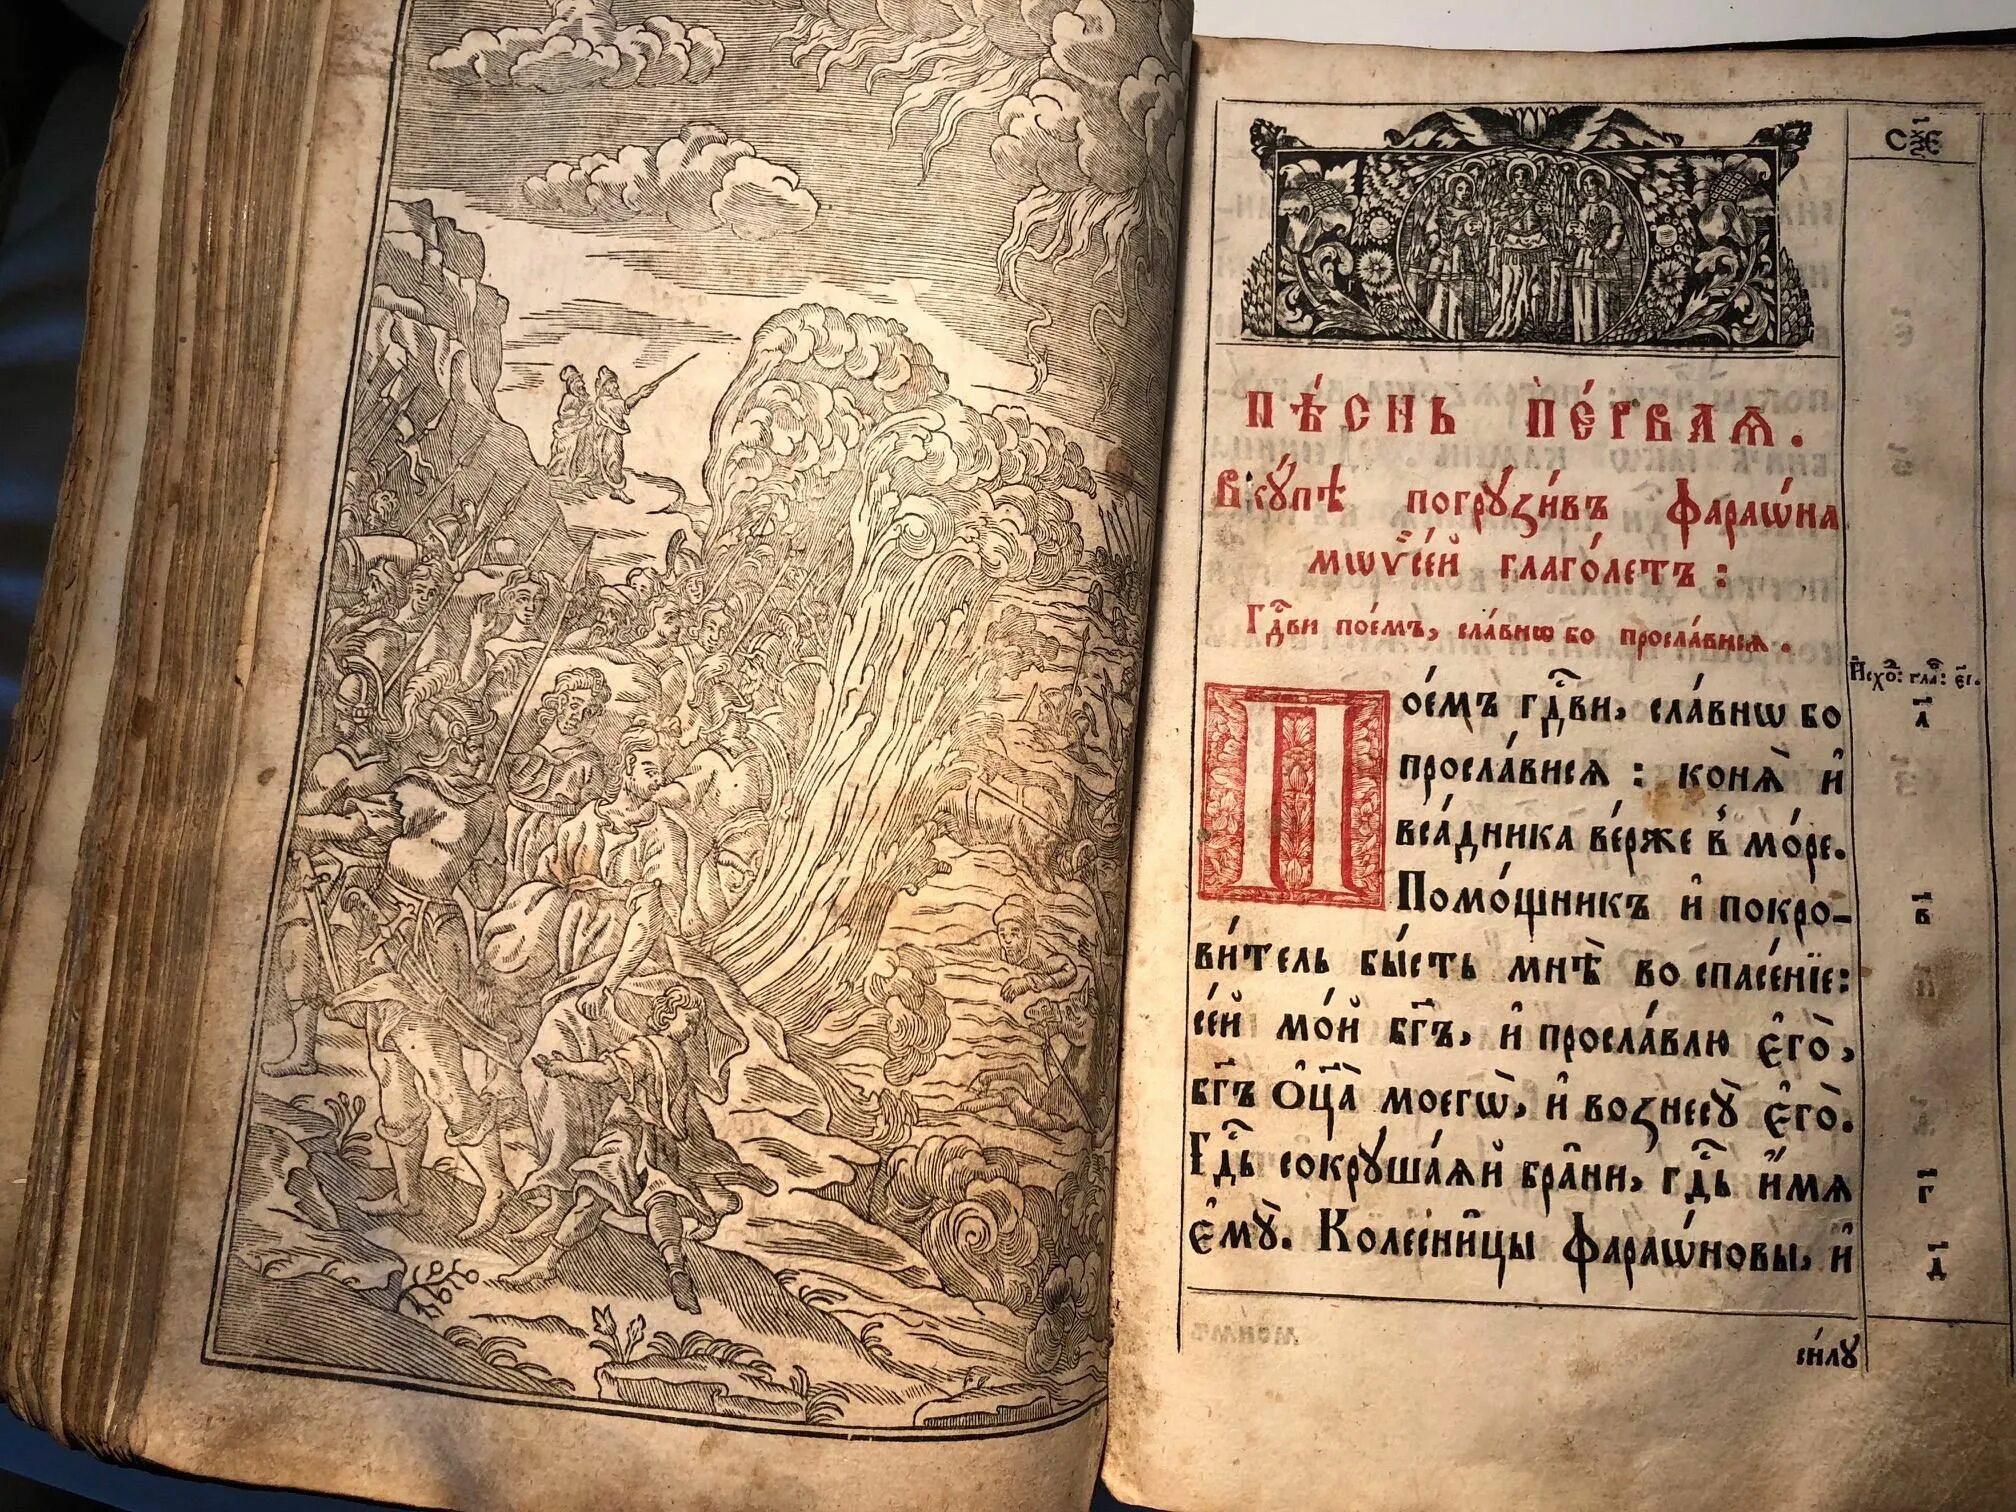 С҃Ѯ҃Є
ПѢ́СНЬ ПЕ́РВАѦ.
Вкꙋ́пѣ погрꙋзи́въ фараѡ́на
мѡѷсе́й глаго́летъ :
Гдⷭ҇ви пое́мъ, сла́внѡ бо просла́висѧ.
И҆схо́: гла́: є҃і.
Пое́мъ гдⷭ҇ви, сла́внѡ бо
а҃
просла́висѧ : конѧ̀ и҆
вса́дника ве́рже в̾ мо́ре.
Помо́щникъ и҆ покро-
в҃
ви́тель бы́сть мнѣ̀ во спасе́нїе:
се́й мо́й бг҃ъ, и҆ просла́влю є҆го̀,
бг҃ъ ѻ҆ц҃а̀ моегѡ̀, и҆ вознесꙋ̀ є҆го̀.
Гдⷭ҇ь сокрꙋша́ѧй бра̑ни, гдⷭ҇ь и҆́мѧ
г҃
є҆мꙋ̀. Колесни̑цы фараѡ́новы, и҆
д҃
си́лꙋ